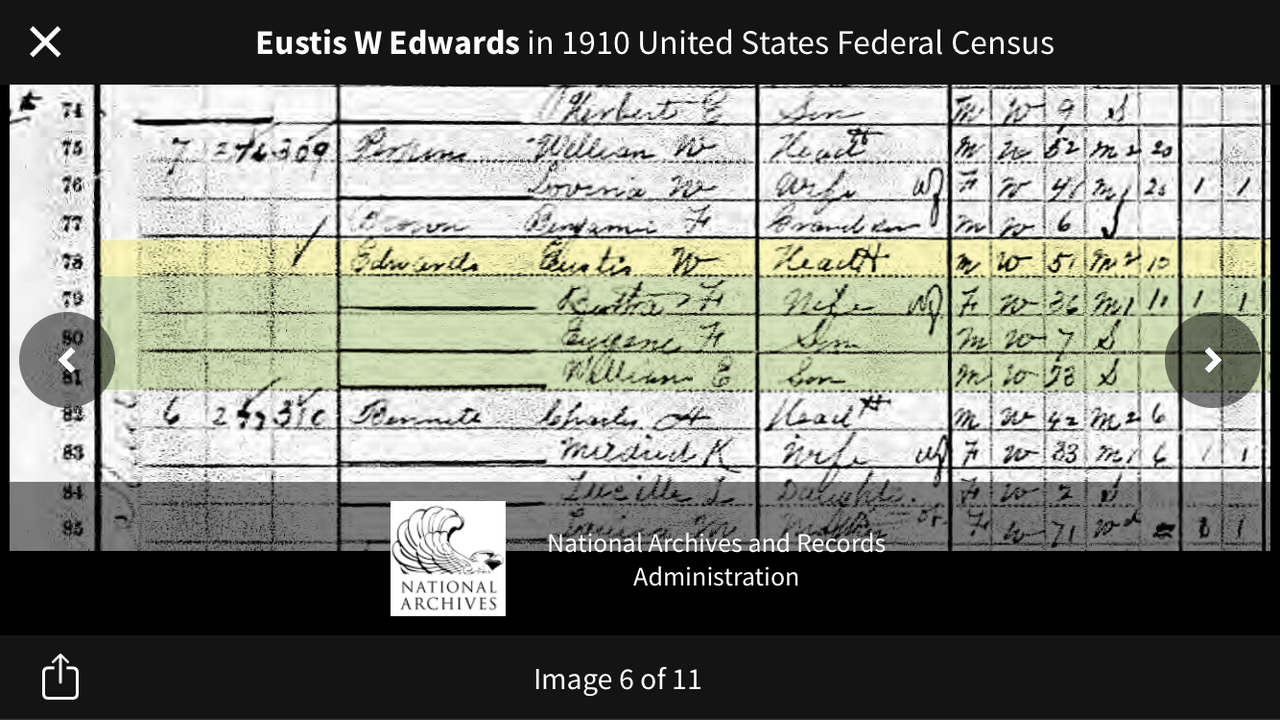 Eustis W Edwards in 1910 United States Federal Census
74 Herbert E Son M W 9 S
75 7 309 William W Head M W 52 M2 20
76 Lovenia W Wife F W M1 20 1 1
77 Brown Benjamin F Grandson M W 6 S
78 Edwards Eustis W Head M W 51 M2 10
79 F Wife F W 36 M1 11 1 1
80 Eugene F Son M W 7 S
81 William E Son M W S
82 6 310 Charles H Head M W 42 M2 6
83 Mildred K Wife F W 33 M1 6 1 1
84 Lucille L F W 2 S
85 F W 71 Wd 1
NATIONAL
ARCHIVES
National Archives and Records
Administration
Image 6 of 11